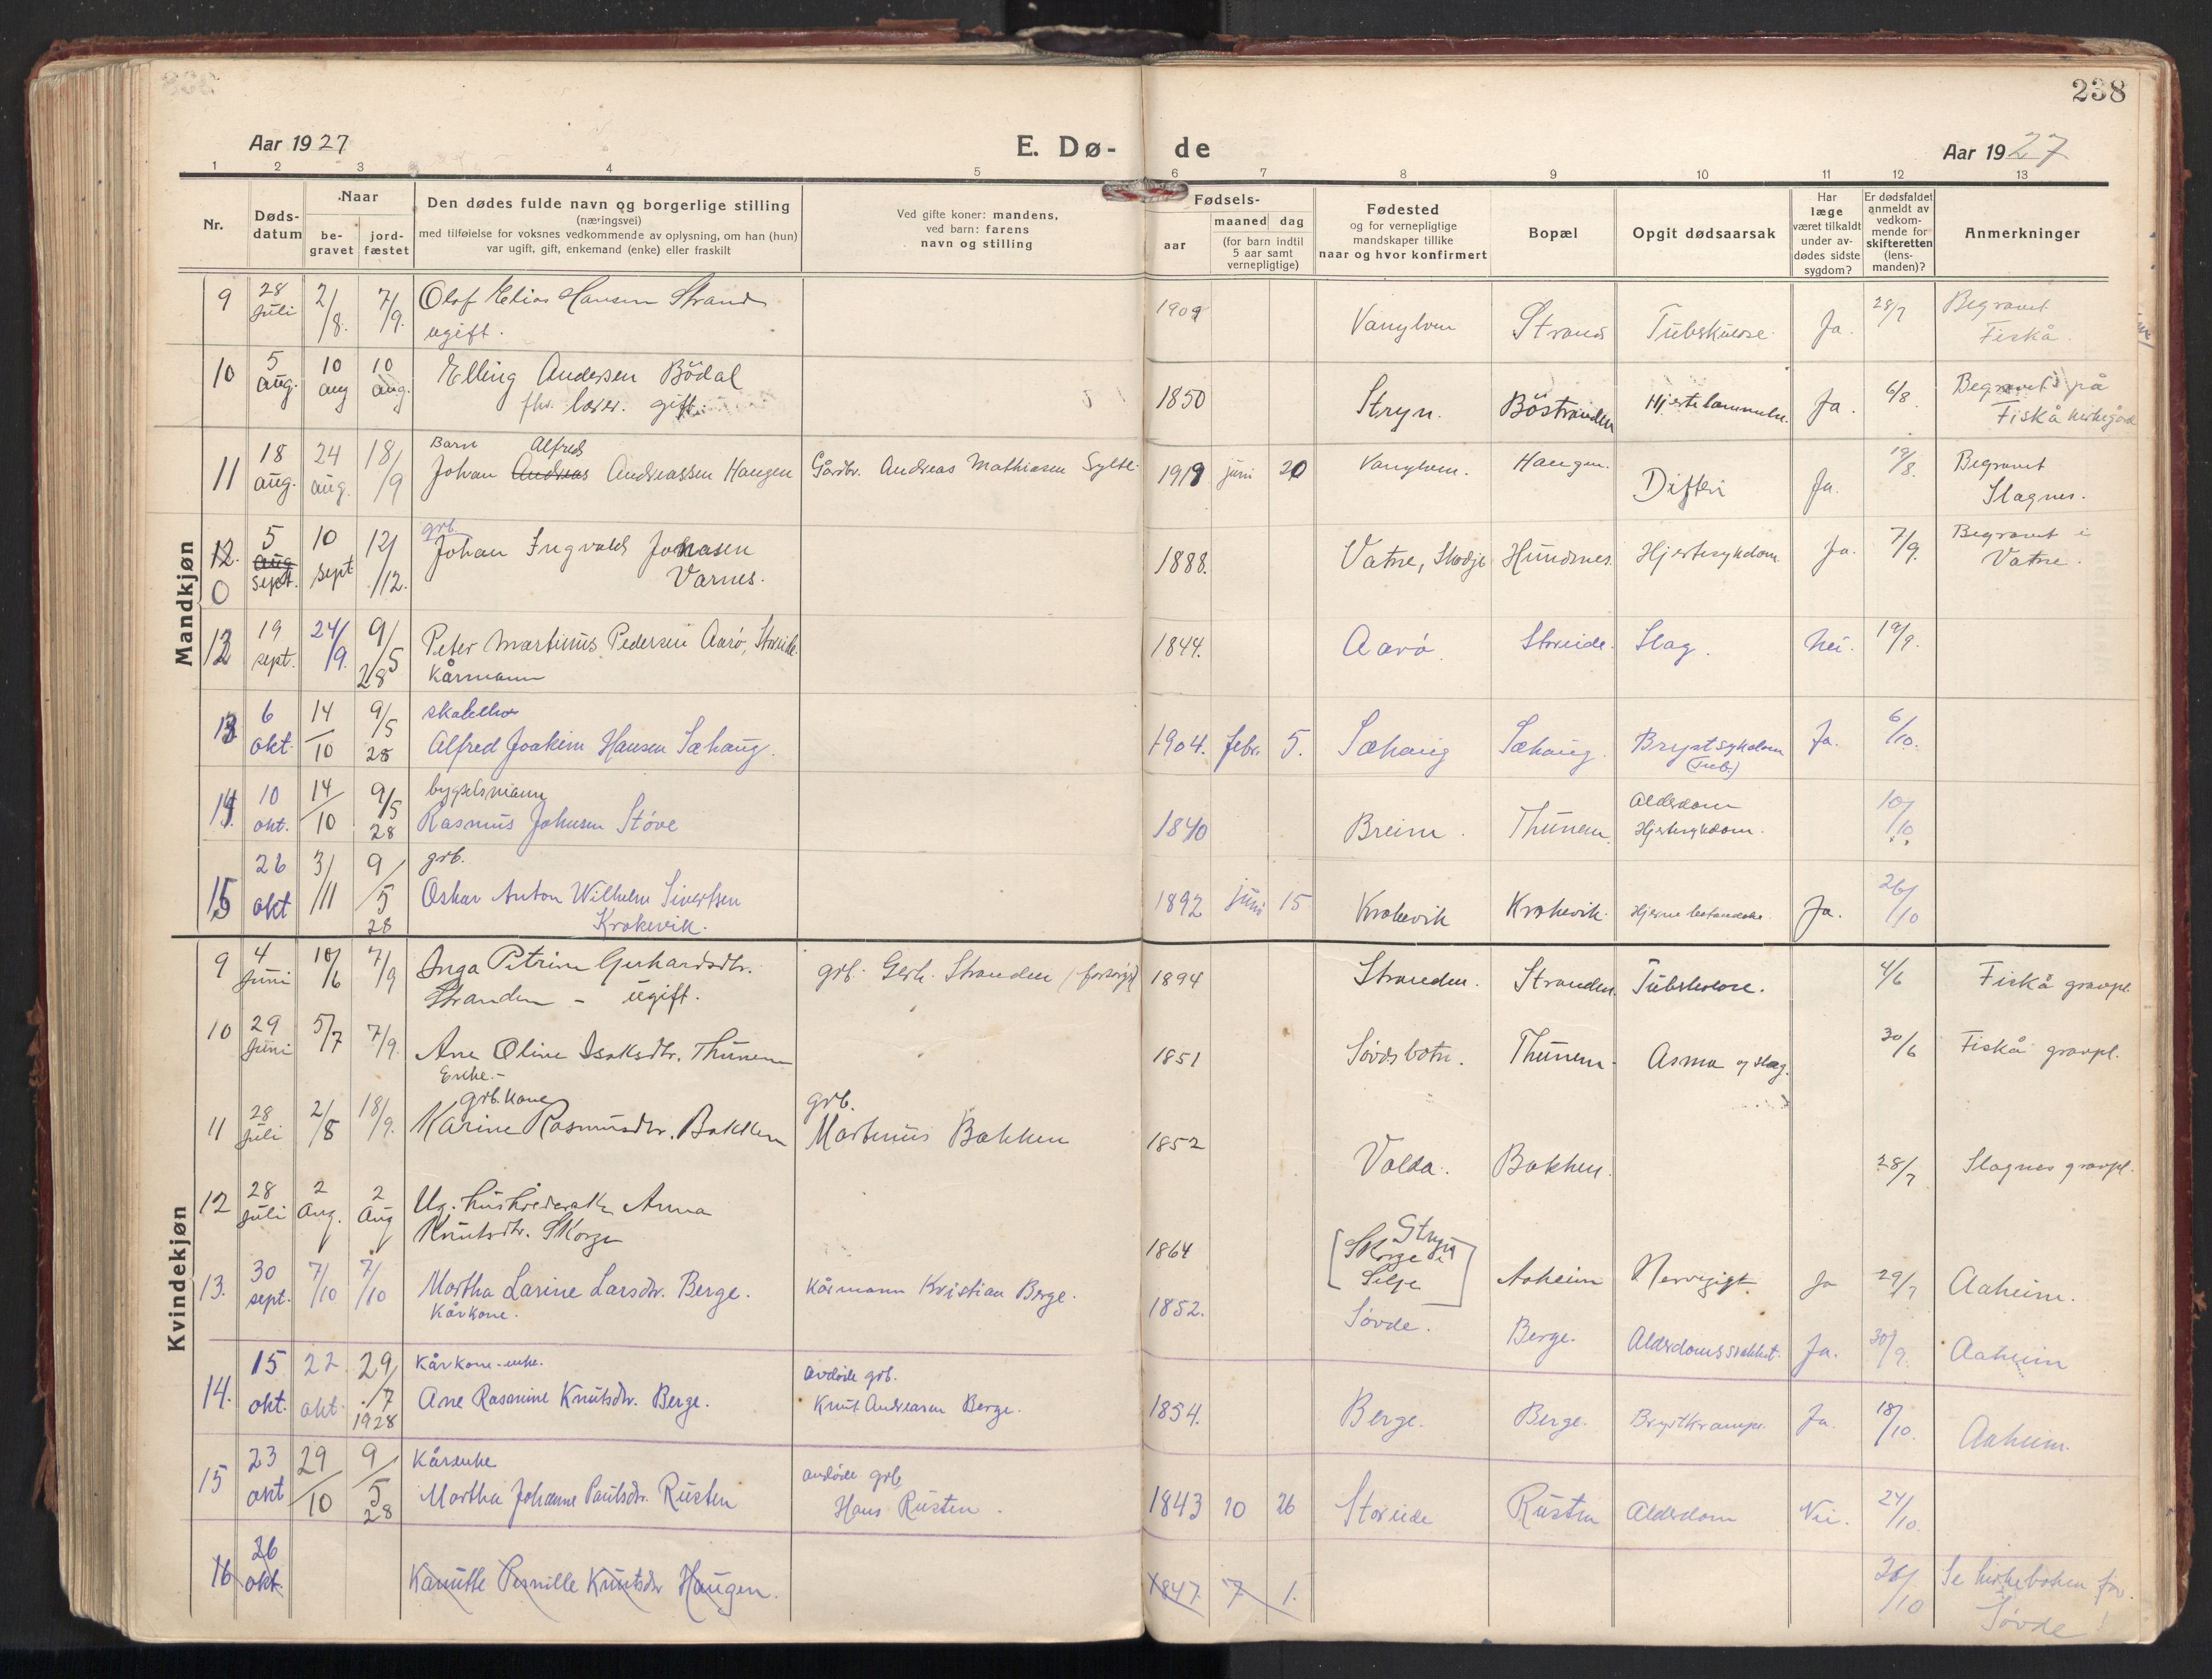 238
Aar 1927
E. Dø-
de
Aar 1927
1 2 3 4 5 6 7 8 9 10 11 12 13
Nr.
Døds-
datum
Naar
be-
gravet
jord-
fæstet
Den dødes fulde navn og borgerlige stilling
(næringsvei)
med tilføielse for voksnes vedkommende av oplysning, om han (hun)
var ugift, gift, enkemand (enke) eller fraskilt
Ved gifte koner: mandens,
ved barn: farens
navn og stilling
Fødsels-
aar
maaned dag
(for barn indtil
5 aar samt
vernepligtige)
Fødested
og for vernepligtige
mandskaper tillike
naar og hvor konfirmert
Bopæl
Opgit dødsaarsak
Har
læge
været tilkaldt
under av-
dødes sidste
sygdom?
Er dødsfaldet
anmeldt av
vedkom-
mende for
skifteretten
(lens-
manden)?
Anmerkninger
Mandkjøn
9 28 Juli 2/8. 7/9. Olaf Elias Hansen Strand
ugift.
1909 Vanylven Strand Tuberkulose. Ja. 28/7 Begravet
Fiskå.
10 5 aug. 10 aug 10 aug. Elling Andersen Bödal
fhv. lærer. gift.
1850 Stryn. Böstranden Hjertelammelse. Ja. 6/8. Begravet på
Fiskå kirkegård
11 18 aug. 24 aug. 18/9 Barn Alfred
Johan Andreas Andreassen Haugen Gårdbr. Andreas Mathiasen Sylte. 1919 juni 20 Vanylven. Haugen. Difteri Ja. 19/8. Begravet
Slagnes.
12. 0 5 aug sept. 10 sept 12/12. grb.
Johan Ingvald Jonasen
Varnes.
1888. Vatne, Skodje Hundsnes. Hjertesykdom. Ja. 7/9. Begravet i
Vatne.
12 19 sept. 24/9. 9/5 28 Peter Martinus Pedersen Aarø, Storeide.
Kårmann
1844. Aarø. Storeide. Slag. Nei. 19/9.
13 6 okt. 14/10 9/5 28
Alfred Joakim Hansen Sæhaug.
1904. febr. 5. Sæhaug Sæhaug. Brystsykdom
(Tub.) Ja. 6/10.
14. 10 okt. 14/10 9/5 28 bygselsmann
Rasmus Johnsen Støve
1840 Breim. Thunem. Alderdom
Hjertesykdom. 10/10
15 26 okt 3/11 9/5 28 grb.
Oskar Anton Wilhelm Sivertsen
Krokevik.
1892 juni 15 Krokevik Krokevik. Ja. 26/10
Kvindekjøn
9 4 Juni 10/6 7/9 Inga Petrine Gerhardsdtr.
Stranden - ugift. grb. Gerh. Stranden (forsørget) 1894 Stranden. Stranden. Tuberkulose. 4/6 Fiskå gravpl.
10 29 Juni 5/7 7/9. Ane Oline Isaksdtr. Thunem
Enke.-
1851 Søvdsbotn. Thunem. Asma og slag. 30/6 Fiskå gravpl.
11 28 Juli 2/8 18/9. grb. kone
Karine Rasmusdtr. Bakken grb.
Martinus Bakken 1852 Volda. Bakken. 28/7 Slagnes gravpl.
12 28 Juli 2 Aug. 2 Aug Ug. Anna
Knutsdtr. Skorge
1864 [Skorge i Stryn
Selje] Aaheim Nervegigt Ja 29/7 Aaheim.
13. 30 sept. 7/10 7/10 Martha Larine Larsdtr. Berge.
Kårkone. Kårmann Kristian Berge. 1852. Søvde. Berge. Alderdomssvakhet. Ja. 30/9. Aaheim
14. 15 okt. 22 okt. 29/7 1928 Kårkone-enke.
Ane Rasmine Knutsdtr. Berge. avdøde grb.
Knut Andreasen Berge. 1854. Berge. Berge. Brystkrampe. Ja. 18/10. Aaheim.
15 23 okt 29/10 9/5 28 Kårenke
Martha Johanne Paulsdtr. Rusten avdøde grb.
Hans Rusten. 1843 10 26 Storeide Rusten Alderdom Nei. 24/10.
16 26 okt. Kanutte Pernille Knutsdtr Haugen. 1847. 7 1. 26/10 Se kirkeboken for
Søvde!